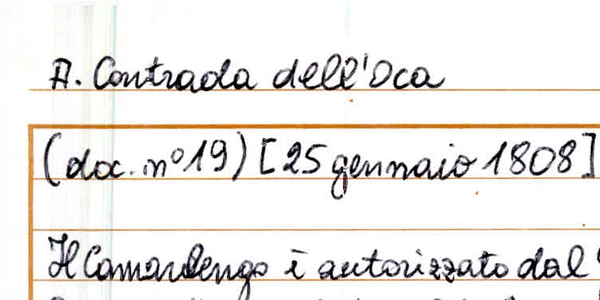 A. Contrada dell'Oca
(doc. n° 19) [25 gennaio 1808]
Il Camarlengo è autorizzato dal